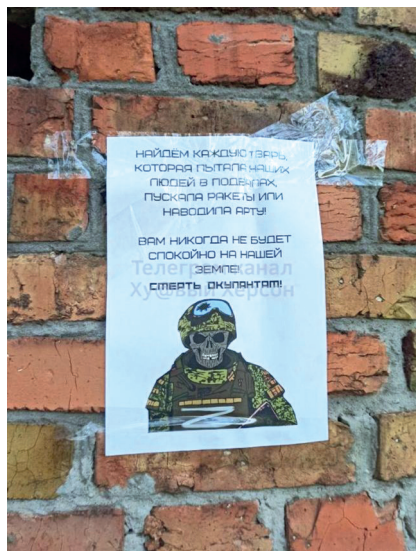 НАЙДЕМ КАЖДУЮ ТВАРЬ,
КОТОРАЯ ПЫТАЛА НАШИХ
ЛЮДЕЙ В ПОДВАЛАХ,
ПУСКАЛА РАКЕТЫ ИЛИ
НАВОДИЛА АРТУ!
ВАМ НИКОГДА НЕ БУДЕТ
СПОКОЙНО НА НАШЕЙ
ЗЕМЛЕ!
СМЕРТЬ ОКУПАНТАМ!
Телеграм канал
Ху@вый Херсон
Z